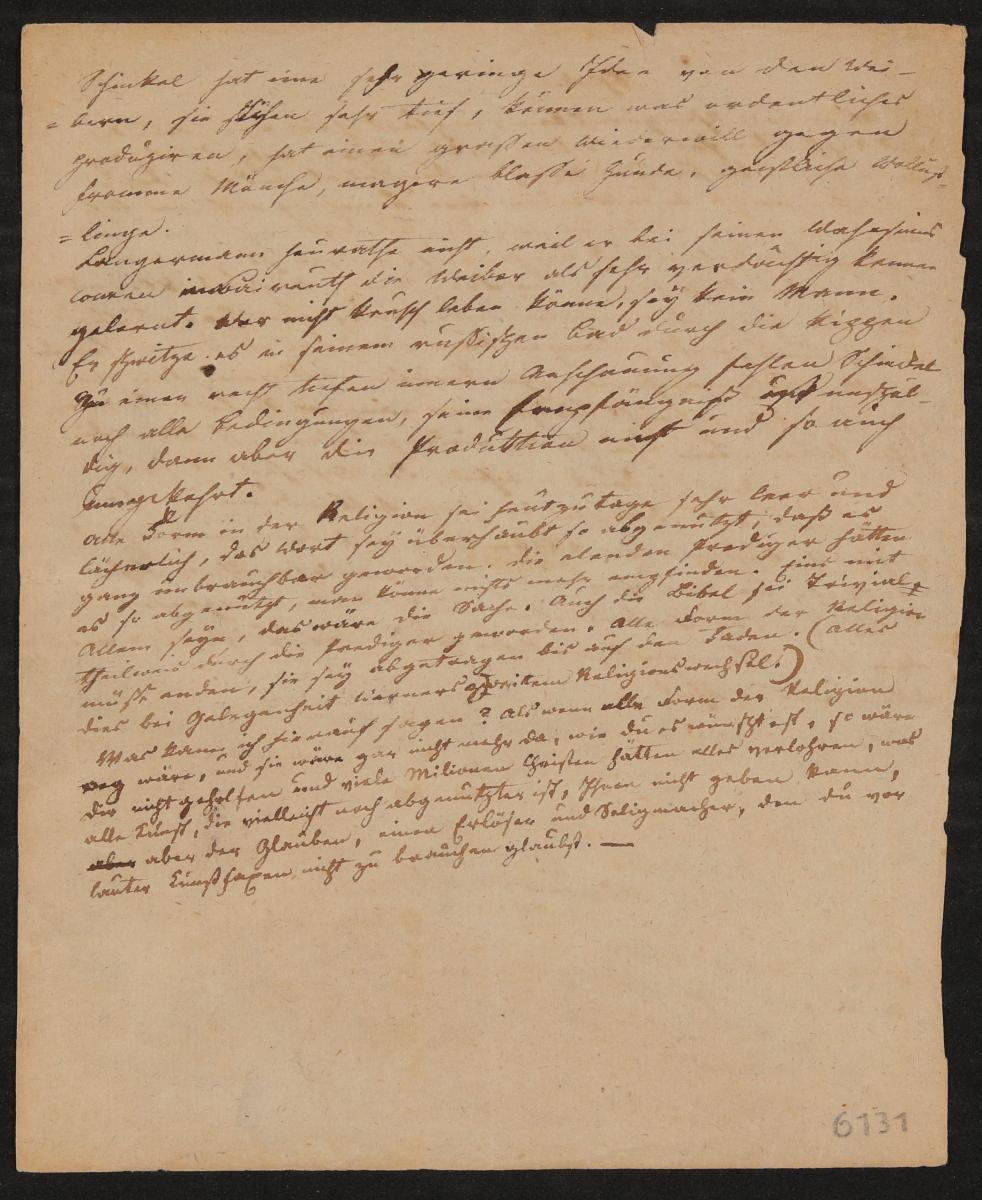 Schinkel hat eine sehr geringe Idee von den Wei-
=bern, sie stehen sehr tief, können was ordentliches
produziren, hat einen grossen Wiederwill gegen
fromme Mönche, magere blasse Hunde, geistliche Wollüst-
=linge.
Langermann heurathe nicht, weil er bei seinen Wahnsinns
couren in Baireuth die Weiber als sehr verdächtig kennen
gelernt. Wer nicht keusch leben könne, sey kein Mann.
Er spritze es in seinem russischen Bad durch die Rippen
Zu einer recht tiefen innern Anschauung fehlen Schinkel
noch alle Bedingungen, seine Empfängniß ist unschul-
dig, dann aber die Produktion nicht und so auch
umgekehrt.
Alle Form in der Religion sei heutzutage sehr leer und
lächerlich, das Wort sey überhaubt so abgenutzt, daß es
ganz unbrauchbar geworden. die elenden Prediger hätten
es so abgenutzt, man könne nichts mehr empfinden. Eins mit
Allem seyn, das wäre die Sache. Auch die Bibel sei Trivial
theilweis durch die Prediger geworden. Alle Form der Religion
müsse enden, sie sey abgetragen bis auf den Faden. (Alles
dies bei Gelegenheit Werners zweitem Religionswechsel.)
Was kann ich hierauf sagen? Als wenn alle Form der Religion
weg wäre, und sie wäre gar nicht mehr da, wie du es wünschst, so wäre
dir nicht geholfen und viele Milionen Christen hätten alles verlohren, was
alle Kunst, die vielleicht noch abgenutzter ist, Ihnen nicht geben kann,
aber aber der Glauben, einen Erlöser und Seligmacher, den du vor
lauter Kunsthexen nicht zu brauchen glaubst. —
6131